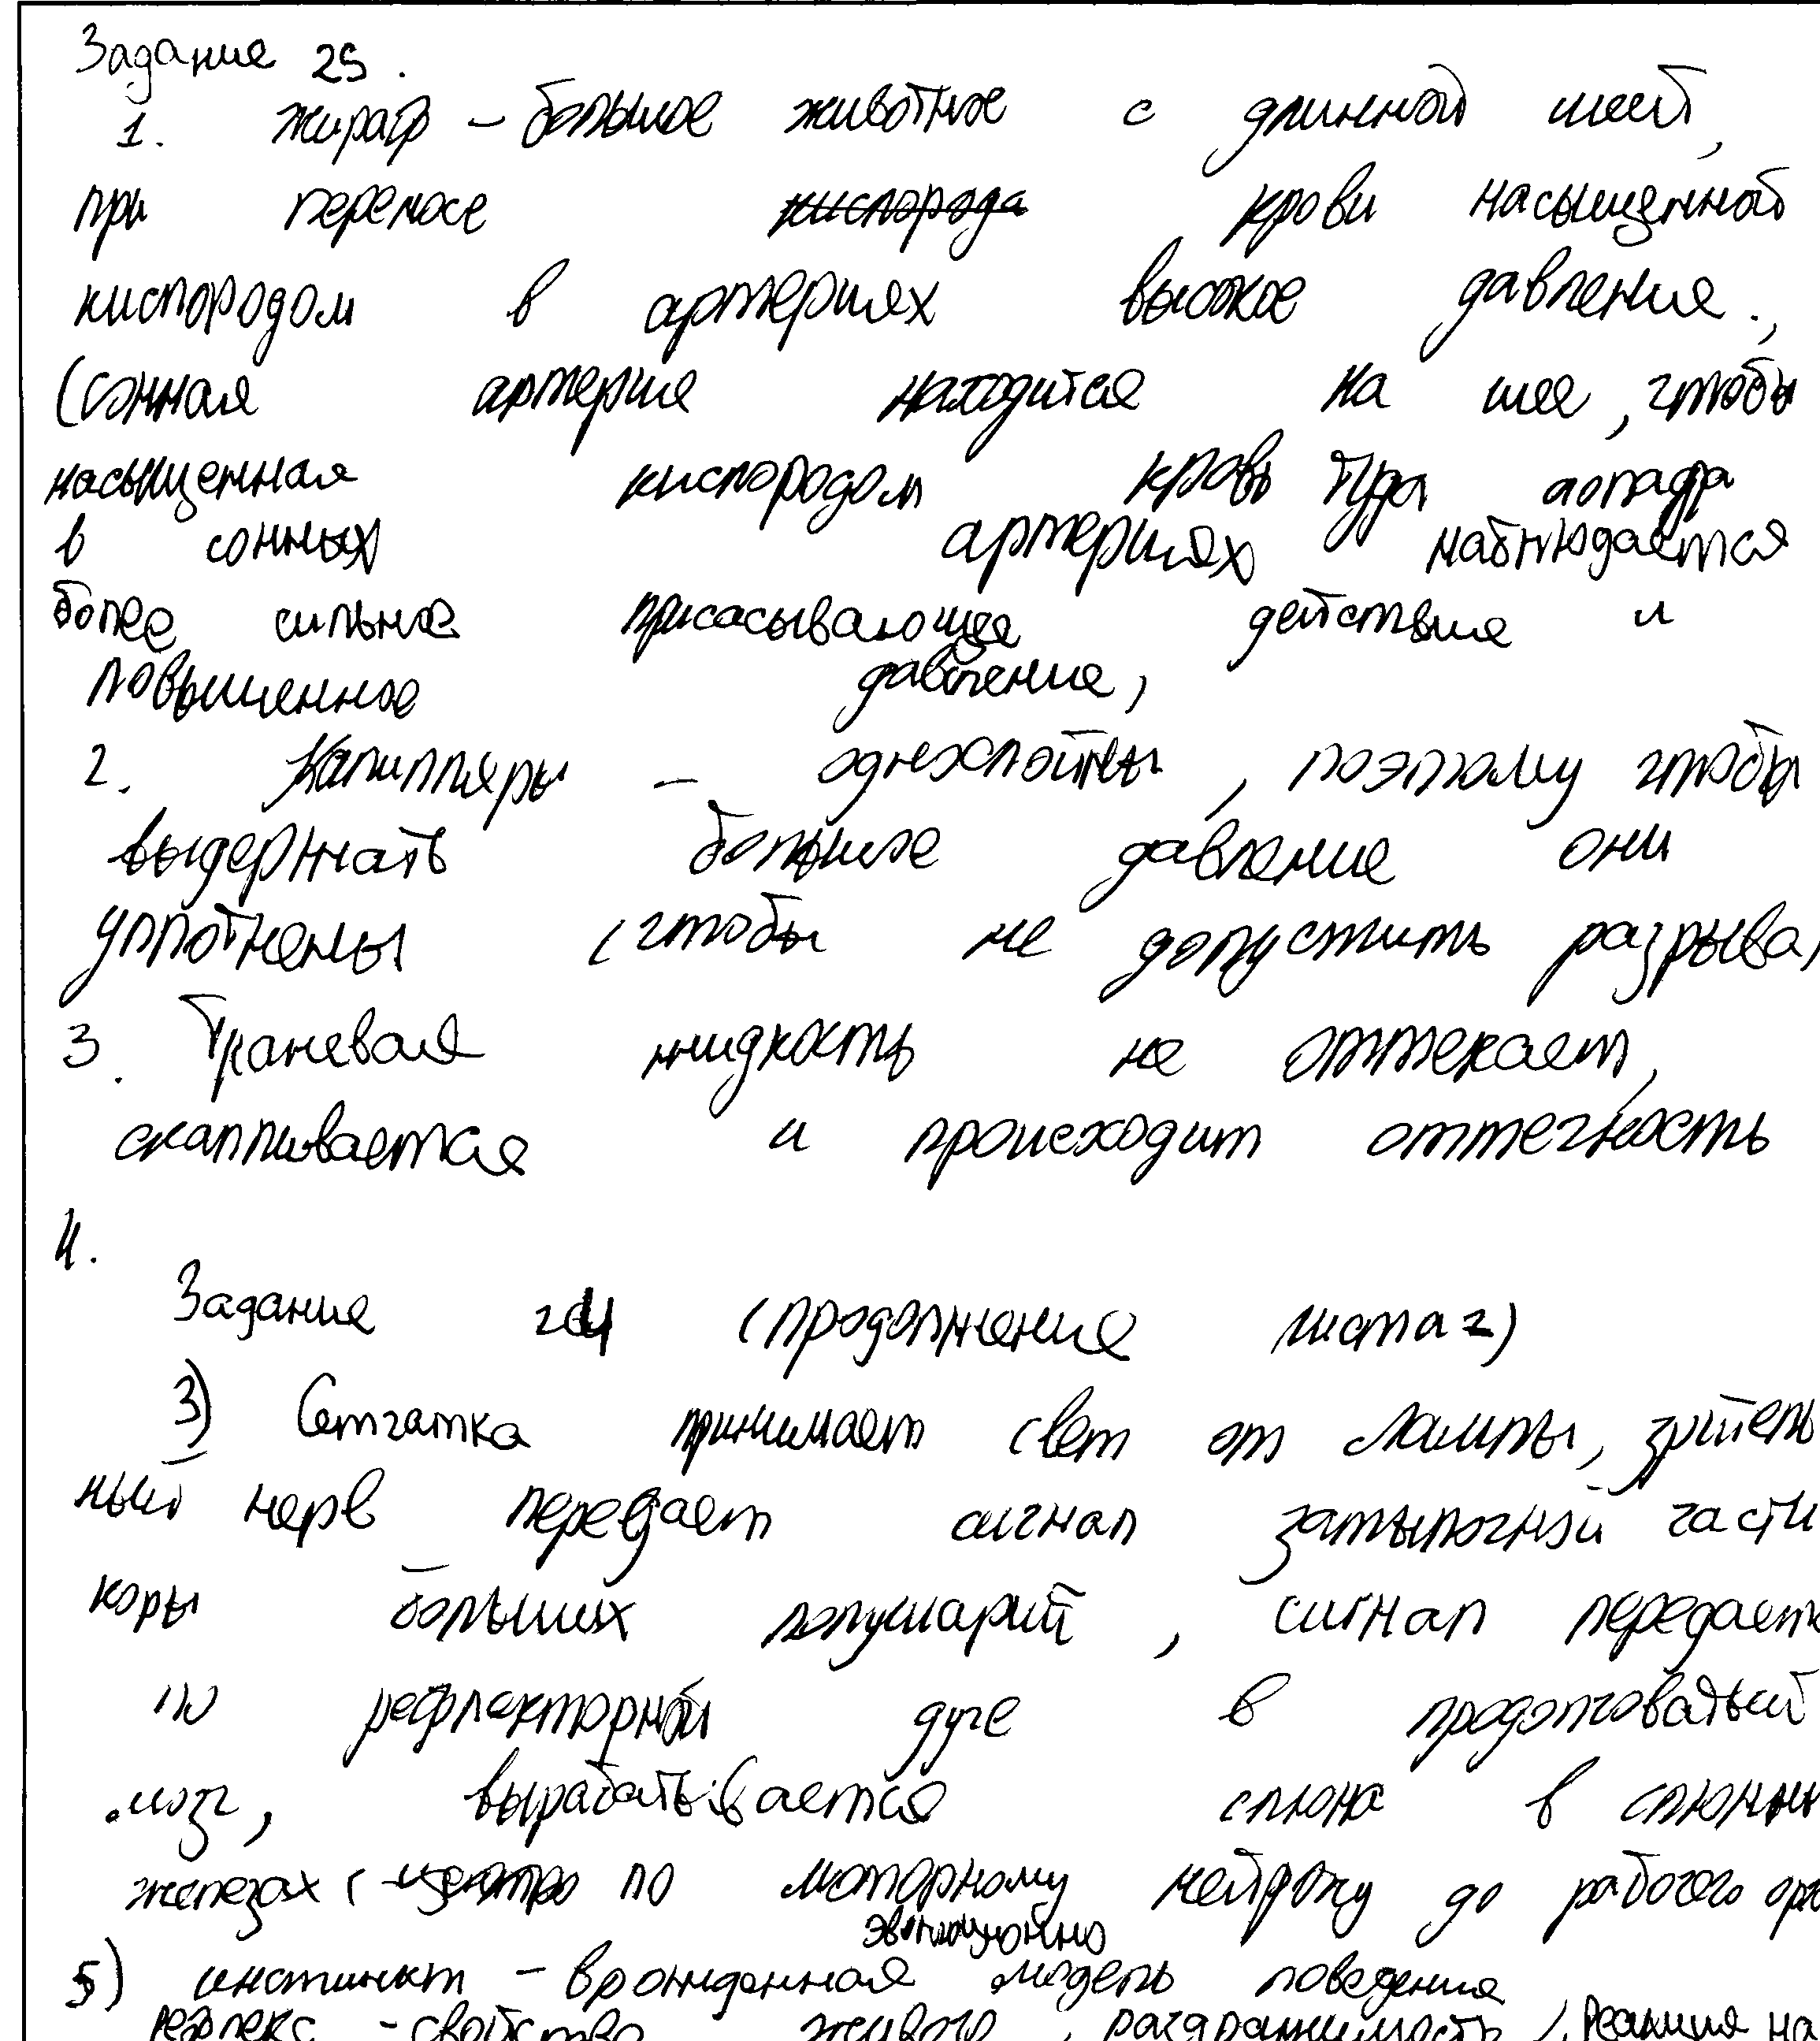 Задание 25.
1. жираф - большое животное с длинной шеей,
при переносе кислорода крови насыщенной
кислородом в артериях высокое давление.,
(сонная артерия находится на шее, чтобы
насыщенная кислородом кровь туда
в сонных артериях наблюдается
более сильное присасывающее действие и
повышенное давление,
2. Капилляры - однослойны, поэтому чтобы
выдержать большое давление они
уплотнены (чтобы не допустить разрыва)
3. Тканевая жидкость не оттекает,
скапливается и происходит оттечность
4.
Задание 24 (продолжение листа 2)
3) Сетчатка принимает свет от лампы, зритель
ный нерв передает сигнал затылочной части
коры больших полушарий, сигнал передаетс
по рефлекторной дуге в продолговатый
мозг, вырабатывается слюна в слюнны
железах ( центро по моторному нейрону до рабочего орг
эволюционно
5) инстинкт - врожденная модель поведения,
рефлекс - свойство живого, раздражимость, реакция на